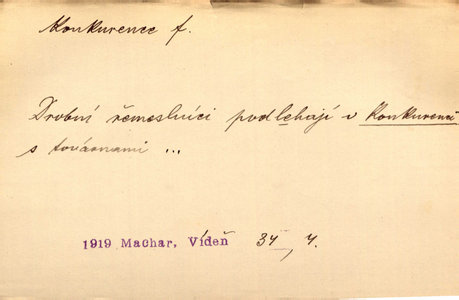 Konkurence f.
Drobní řemeslníci podlehají v konkurenci
s továrnami ...
1919 Machar, Vídeň 34, 4.